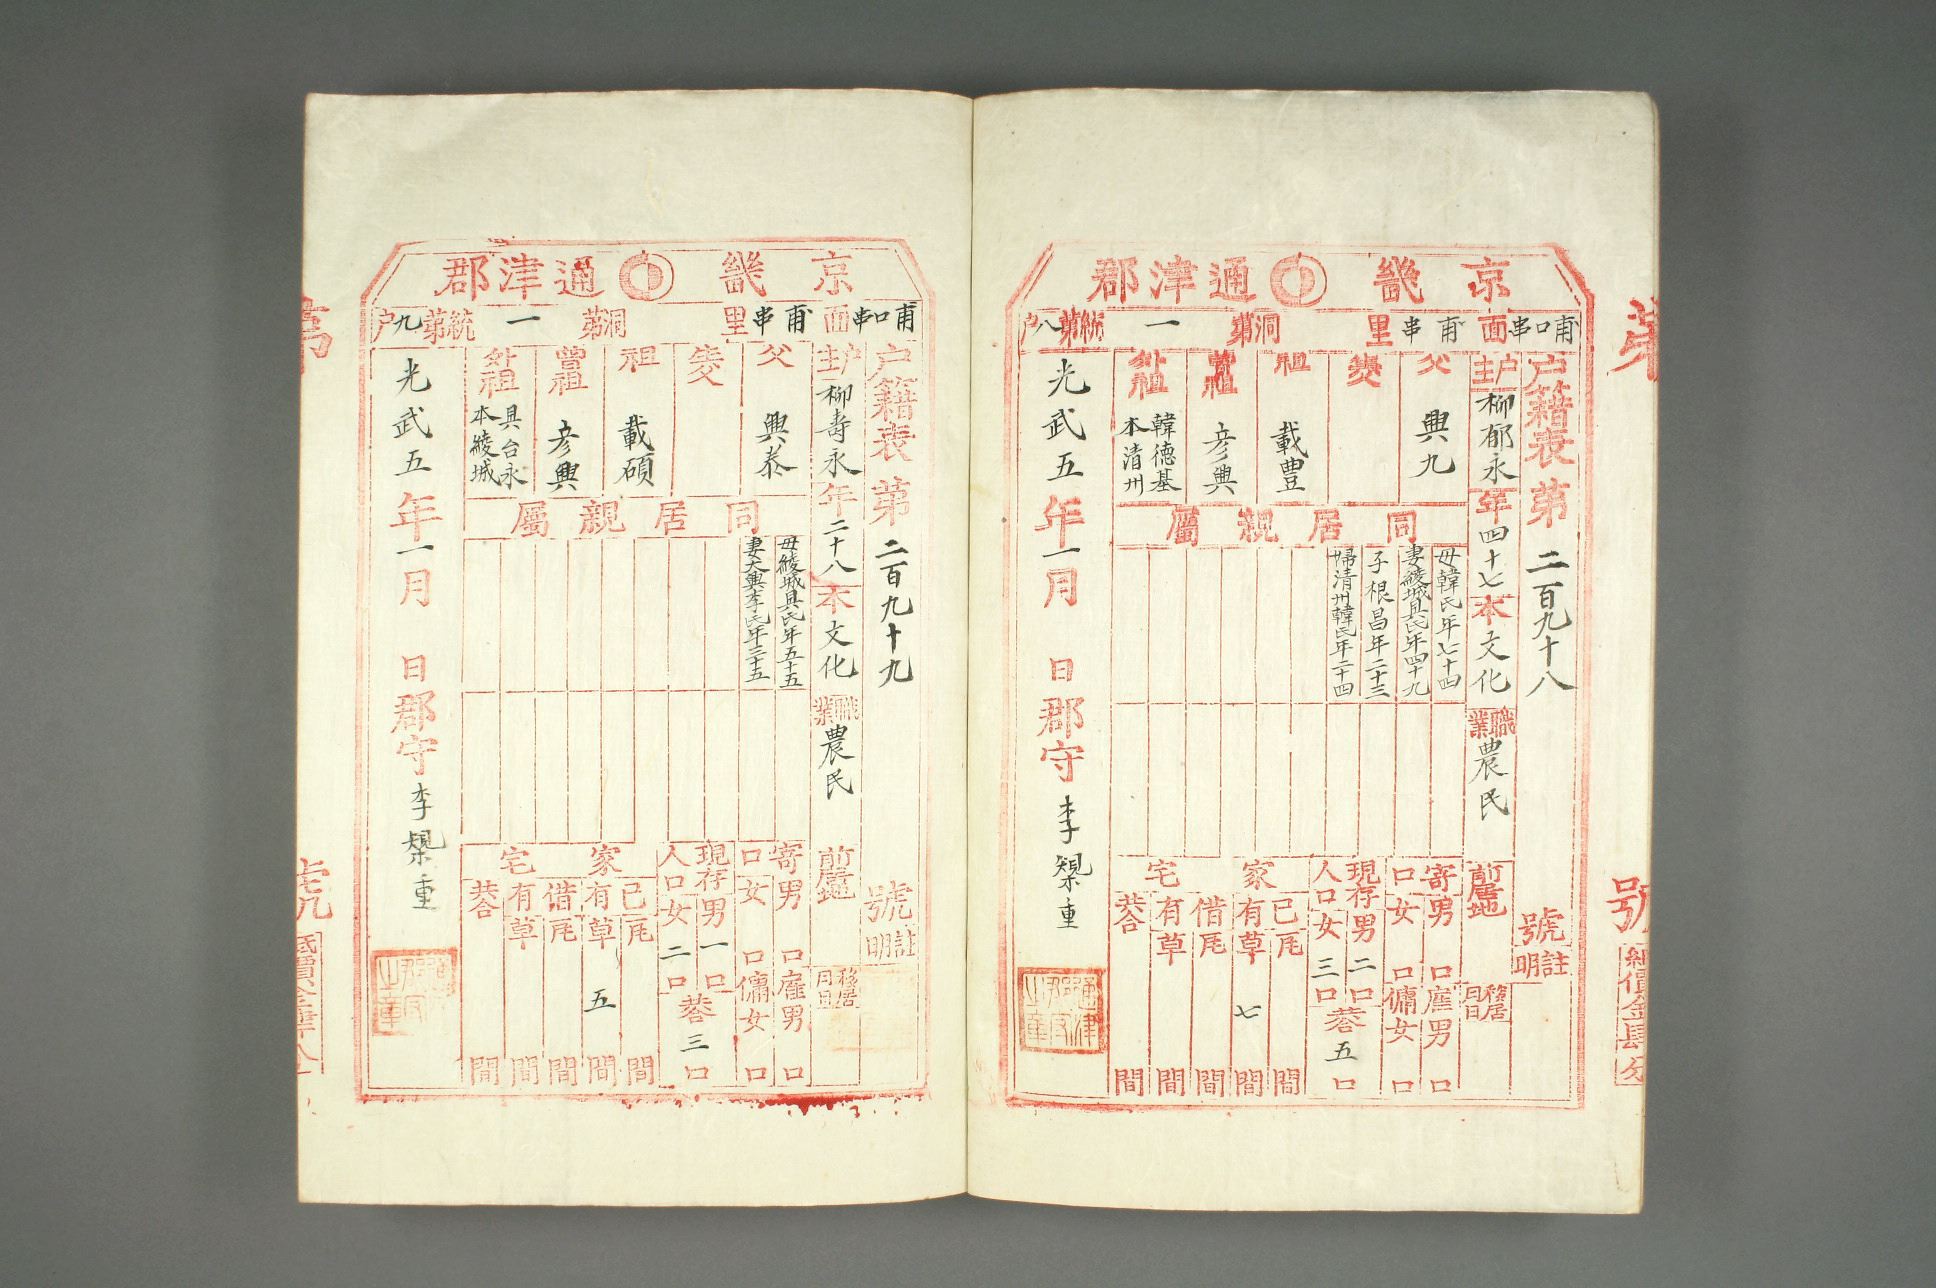 京畿 通津郡
甫口串面 甫串里 洞第一統第八户
户籍表第二百九十八號
註明
户主柳郁永年四十七本文化職業農民
前居地
移居月日
父興九
生父
祖載豊
曾祖彦興
外祖韓德基
本清州
同居親屬
母韓氏年七十四
妻綾城具氏年四十九
子根昌年二十三
婦清州韓氏年二十四
寄口男口雇男口
女口傭女口
現存人口男二口
女三口
共合五口
家宅
已有瓦間
草七間
借有瓦間
草間
共合間
光武五年一月日郡守李槼重
第號
紙價金肆分
京畿 通津郡
甫口串面 甫串里 洞第一統第九户
户籍表第二百九十九號
註明
户主柳壽永年二十八本文化職業農民
前居地
移居月日
父興泰
生父
祖載碩
曾祖彦興
外祖具台永
本綾城
同居親屬
母綾城具氏年五十五
妻大興李氏年三十五
寄口男口雇男口
女口傭女口
現存人口男一口
女二口
共合三口
家宅
已有瓦間
草五間
借有瓦間
草間
共合間
光武五年一月日郡守李槼重
第號